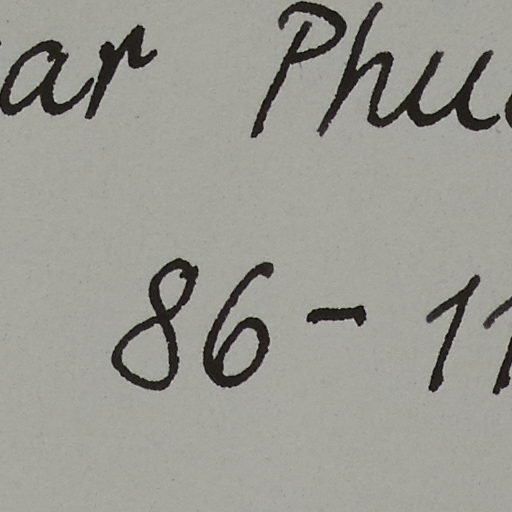 ar Phu
86-11